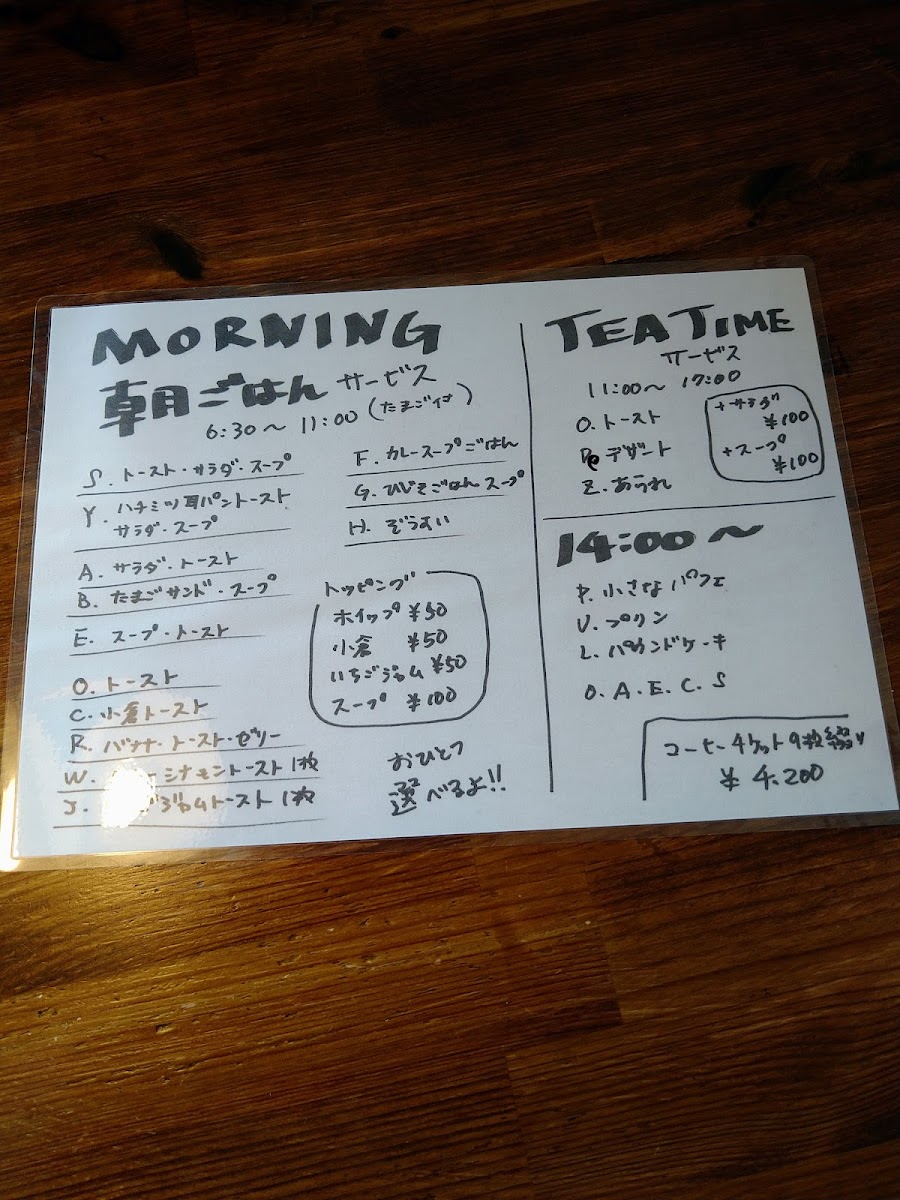 MORNING
朝ごはん サービス
6:30〜11:00 (たまご付)
S. トースト・サラダ・スープ
Y. ハチミツ耳パントースト
サラダ・スープ
A. サラダ・トースト
B. たまごサンド・スープ
E. スープ・トースト
O. トースト
C. 小倉トースト
R. バナナ・トースト・ゼリー
W. シナモントースト1枚
J. ジャムトースト1枚
F. カレースープごはん
G. ひじきごはん スープ
H. ぞうすい
トッピング
ホイップ ¥50
小倉 ¥50
いちごジャム ¥50
スープ ¥100
おひとつ
選べるよ!!
TEA TIME
サービス
11:00〜17:00
O. トースト
De デザート
Z. あられ
+サラダ
¥100
+スープ
¥100
14:00〜
P. 小さなパフェ
V. プリン
L. パウンドケーキ
O. A. E. C. S
コーヒーチケット9枚綴り
¥4.200